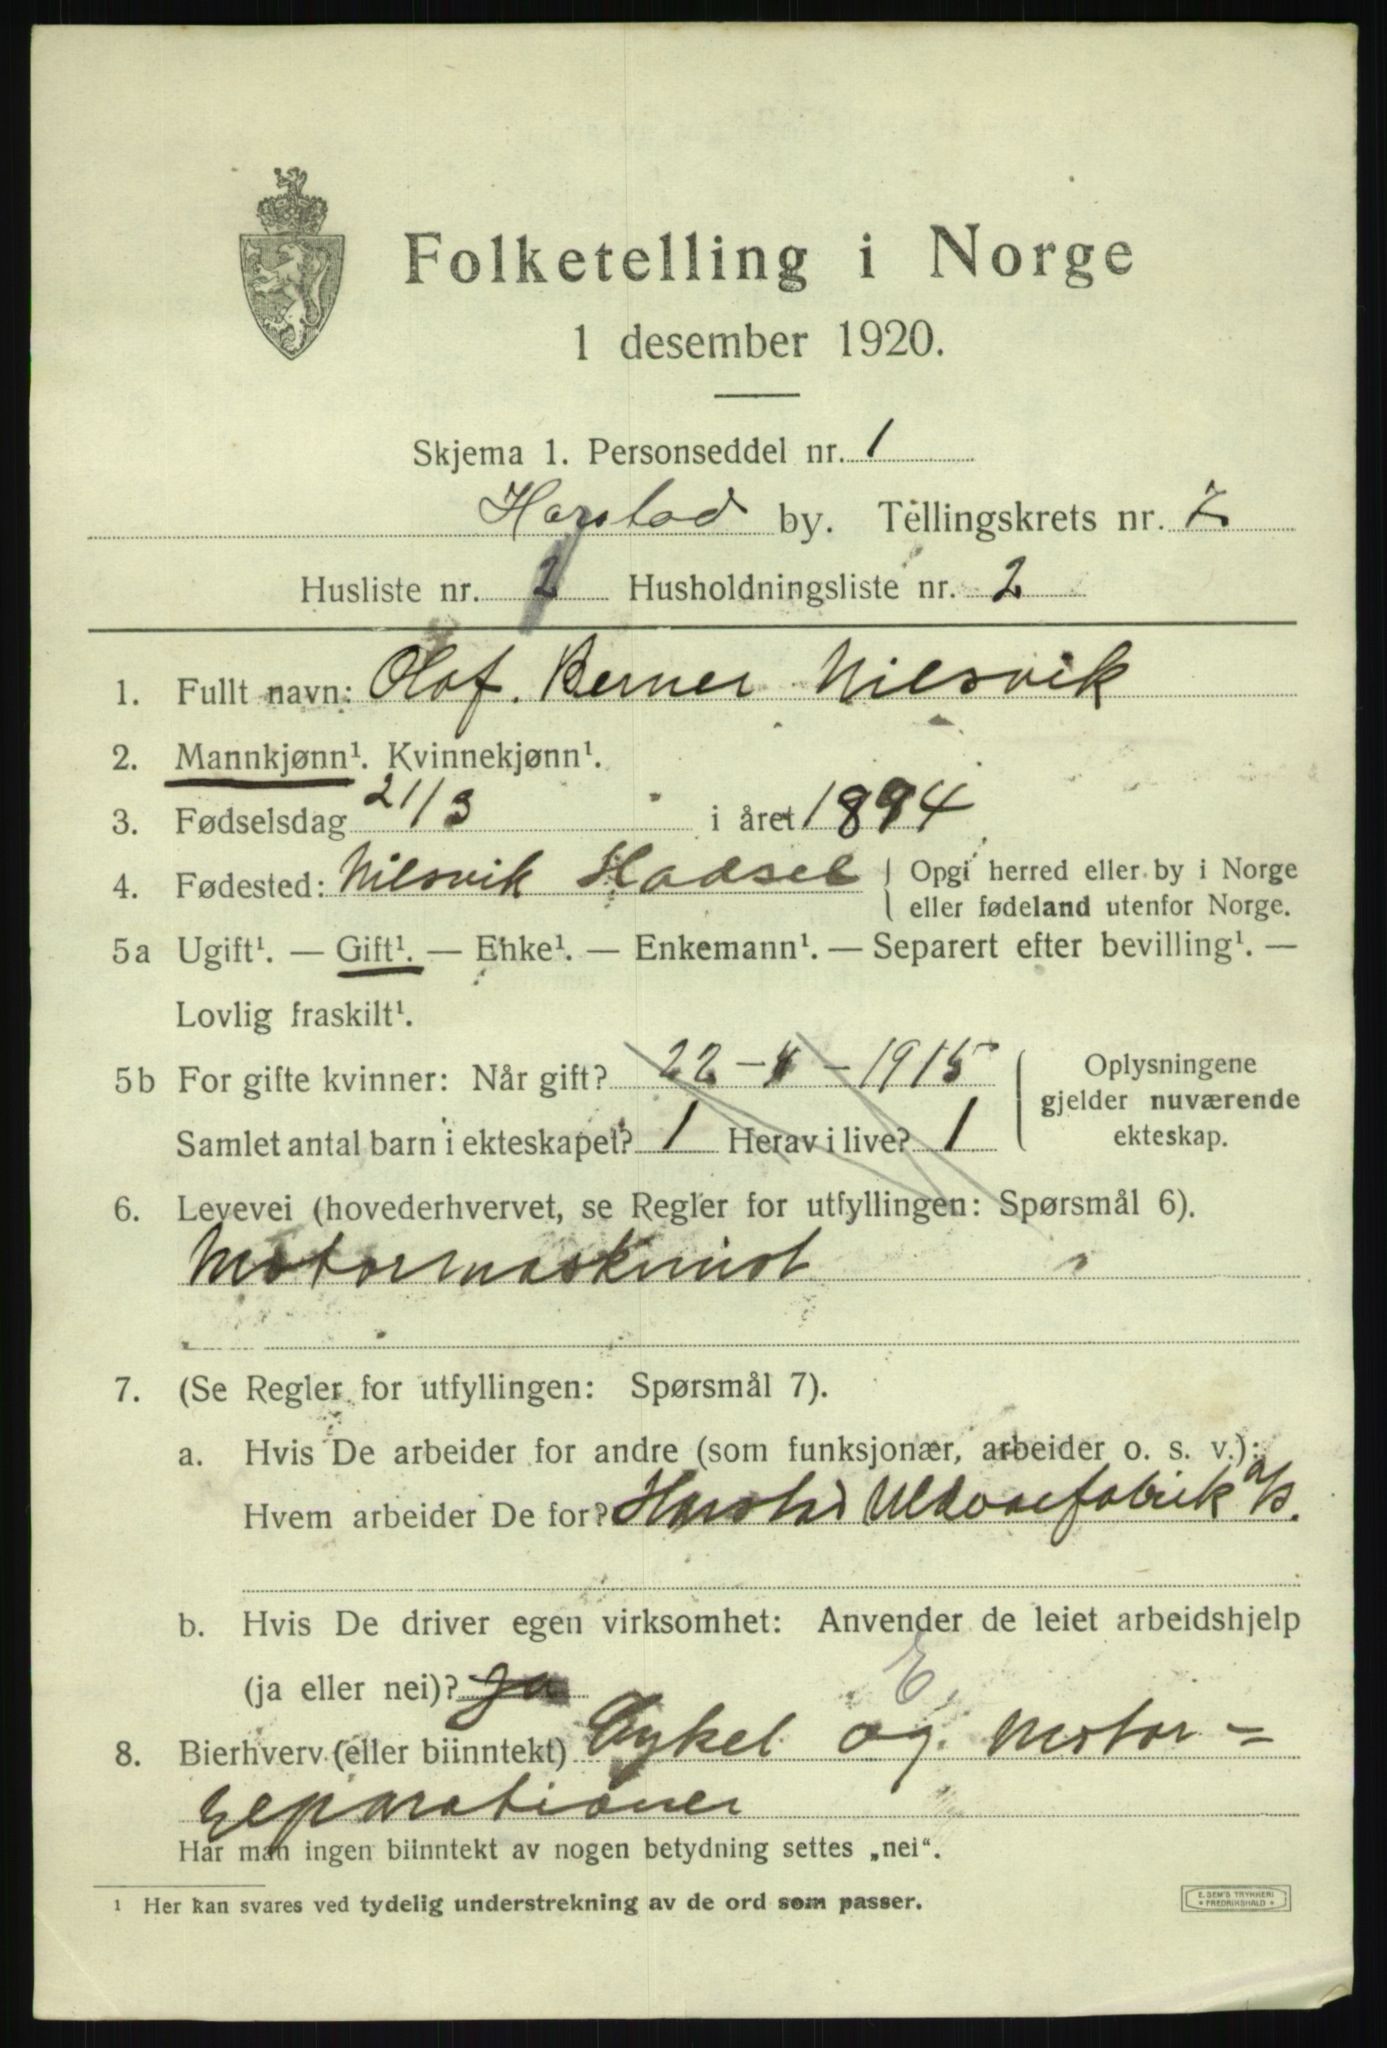 Folketelling i Norge
1 desember 1920.
Skjema 1. Personseddel nr. 1
Harstad by. Tellingskrets nr. 7
Husliste nr. 2 Husholdningsliste nr. 2
1. Fullt navn: Olaf. Berner Nilsvik
2. Mannkjønn¹. Kvinnekjønn¹.
3. Fødselsdag 21/3 i året 1894
4. Fødested: Nilsvik Hadsel { Opgi herred eller by i Norge
eller fødeland utenfor Norge.
5a Ugift¹. — Gift¹. — Enke¹. — Enkemann¹. — Separert efter bevilling¹. —
Lovlig fraskilt¹.
5b For gifte kvinner: Når gift? 22-4-1915
Samlet antal barn i ekteskapet? 1 Herav i live? 1
Oplysningene
gjelder nuværende
ekteskap.
6. Levevei (hovederhvervet, se Regler for utfyllingen: Spørsmål 6).
Motormaskinist
7. (Se Regler for utfyllingen: Spørsmål 7).
a. Hvis De arbeider for andre (som funksjonær, arbeider o. s. v.):
Hvem arbeider De for? Harstad Uldvarefabrik a/s.
b. Hvis De driver egen virksomhet: Anvender de leiet arbeidshjelp
E
(ja eller nei)? ja
8. Bierhverv (eller biinntekt) Cykel og. Motor-
reparationer
Har man ingen biinntekt av nogen betydning settes „nei“.
¹ Her kan svares ved tydelig understrekning av de ord som passer.
E. SEM'S TRYKKERI
• FREDRIKSHALD •